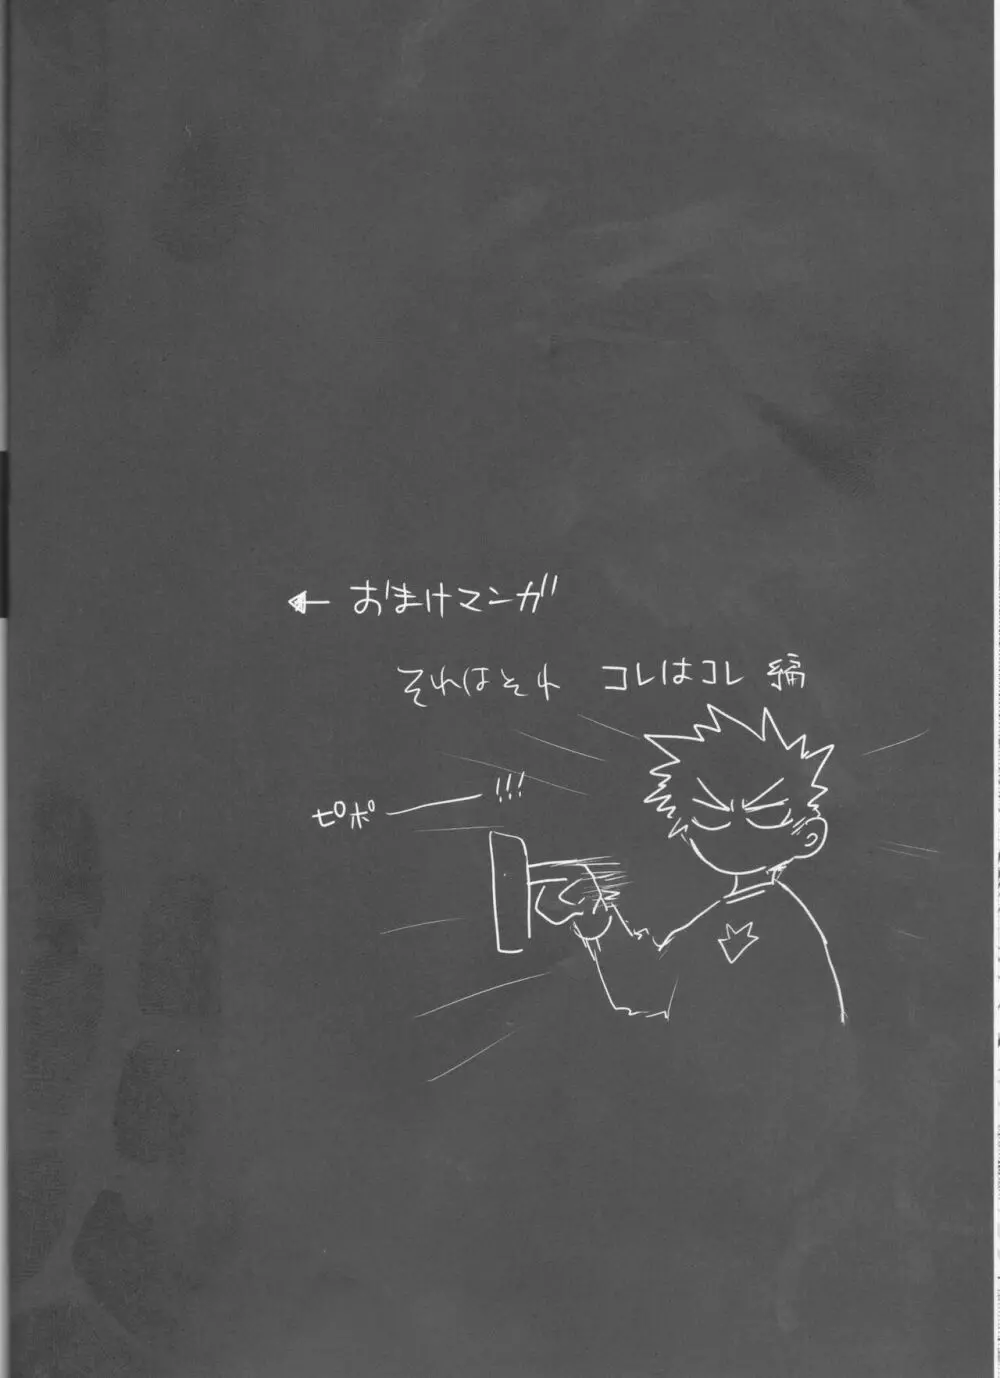 ← おまけマンガ
それはそれ コレはコレ 編
ピポ――!!!